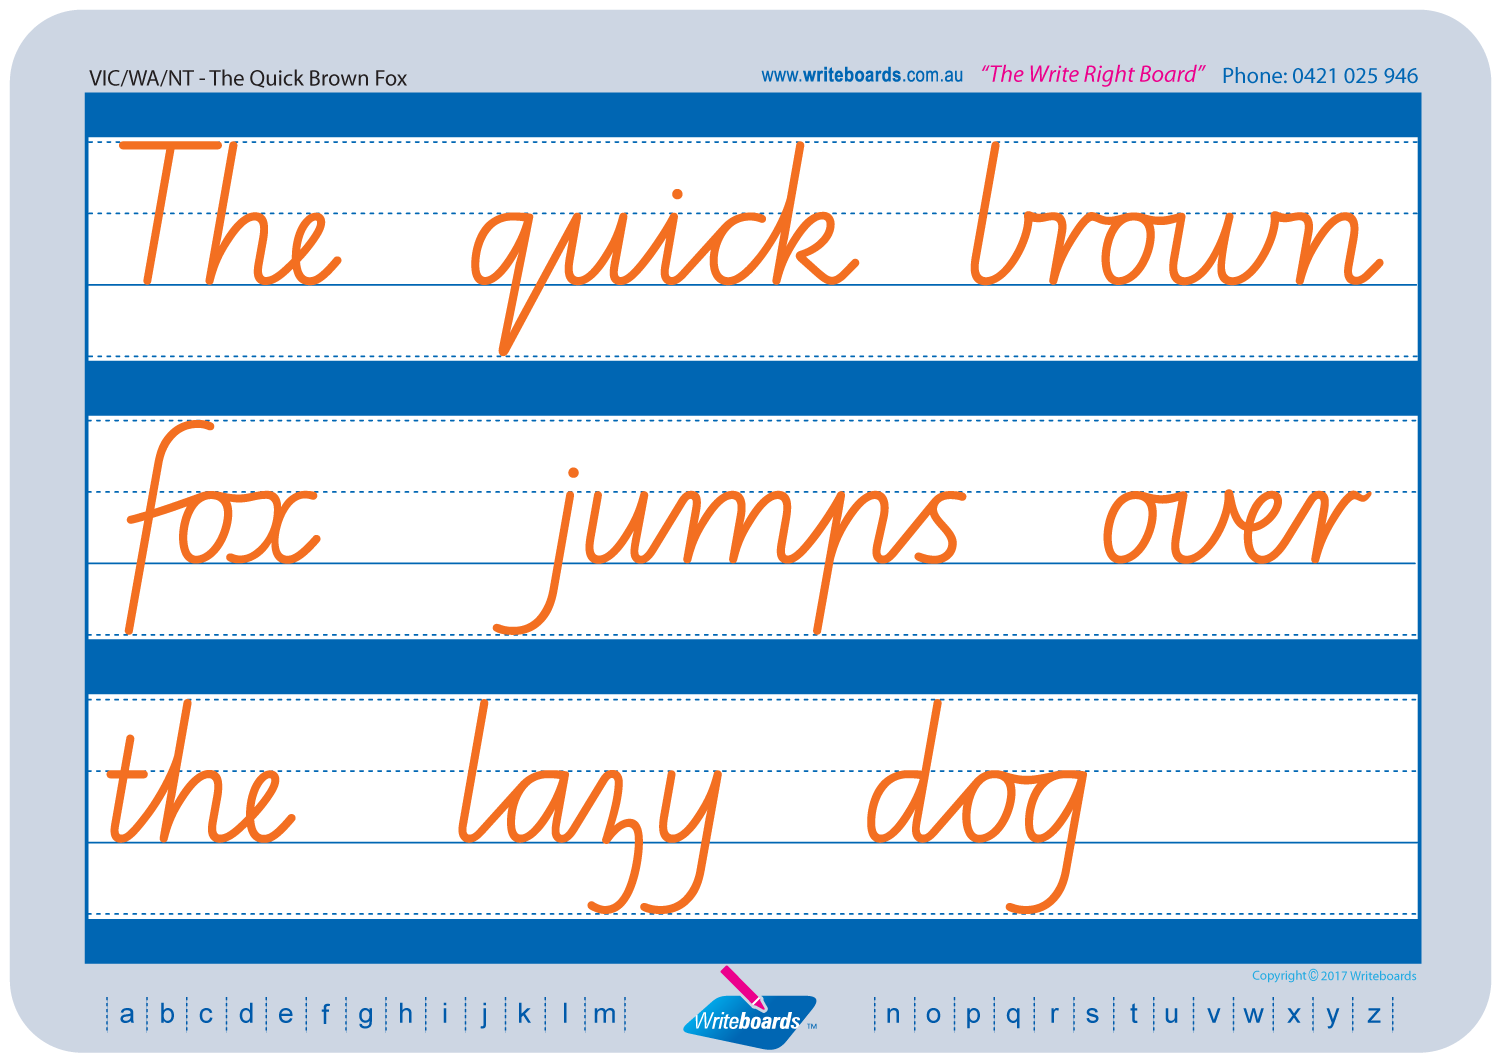 VIC/WA/NT - The Quick Brown Fox
www.writeboards.com.au "The Write Right Board" Phone: 0421 025 946
The quick brown
fox jumps over
the lazy dog
Copyright © 2017 Writeboards
a b c d e f g h i j k l m
Writeboards™
n o p q r s t u v w x y z